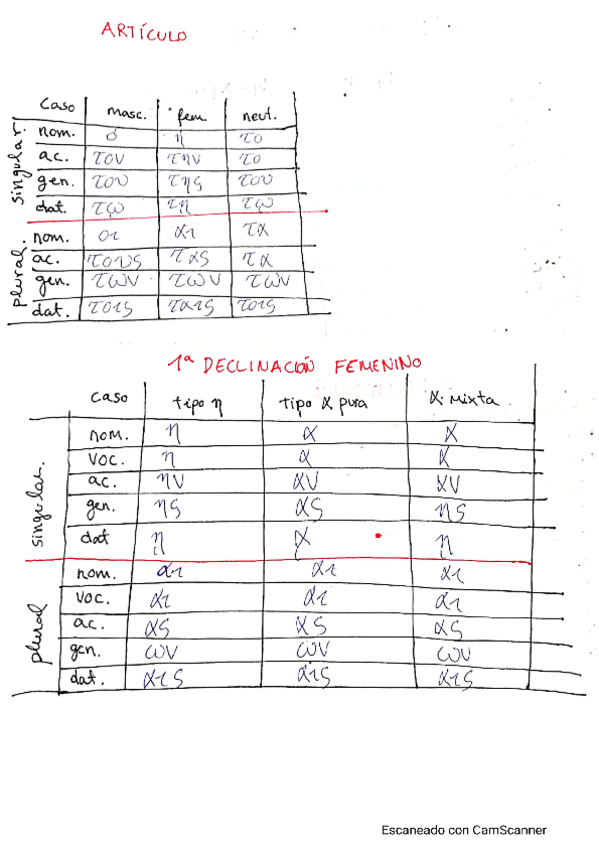 ARTÍCULO
Caso masc. fem. neut.
singular.
nom. ὁ η το
ac. τον την το
gen. του της του
dat. τῳ τῃ τῳ
plural.
nom. οι αι τα
ac. τους τας τα
gen. των των των
dat. τοις ταις τοις
1ª DECLINACIÓN FEMENINO
caso tipo η tipo α pura α mixta
singular.
nom. η α α
voc. η α α
ac. ην αν αν
gen. ης ας ης
dat ῃ ᾳ ῃ
plural
nom. αι αι αι
voc. αι αι αι
ac. ας ας ας
gen. ων ων ων
dat. αις αις αις
Escaneado con CamScanner